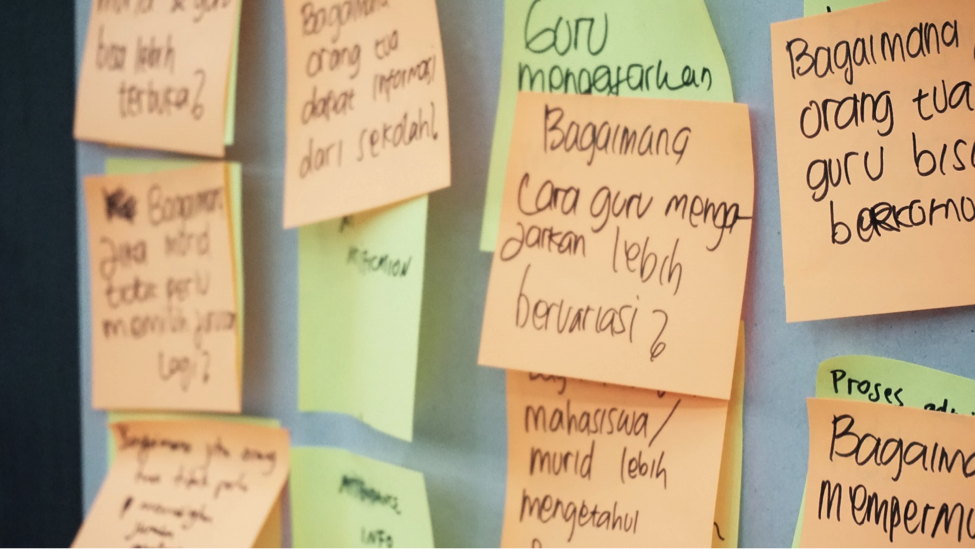 bisa lebih
terbuka?
Bagaimana
orang tua
dapat informasi
dari sekolah?
Guru
mengajarkan
Bagaimana
orang tua
guru bis
berkomu
Bagaimana
jika murid
tidak perlu
memilih jurusan
lagi?
Bagaimana
Cara guru menga-
jarkan lebih
bervariasi?
mahasiswa/
murid lebih
mengetahui
Proses
Bagaima
mempermu
Bagaimana jika orang
tua tidak perlu
INFO